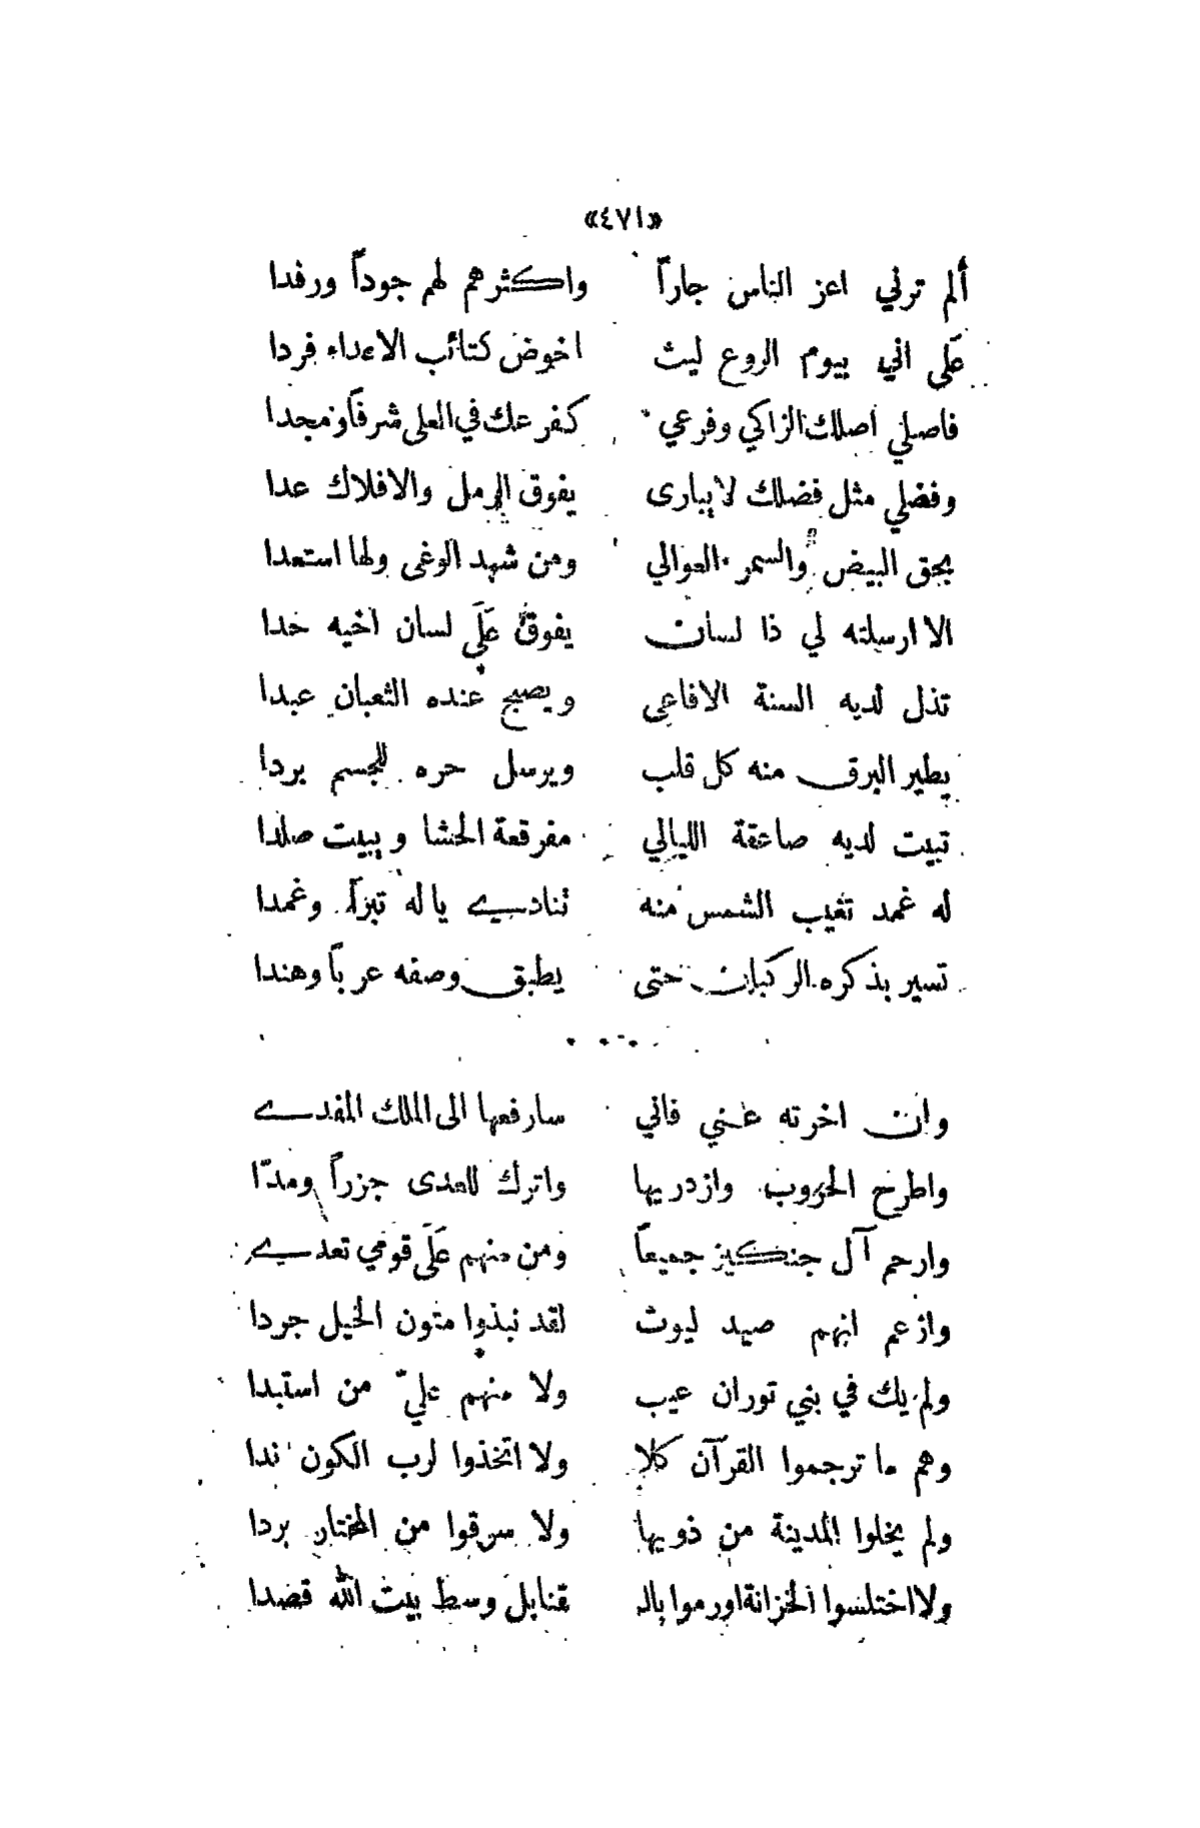 «٤٧١»
ألم ترني اعز الناس جاراً واكثرهم لهم جوداً ورفدا
عَلى اني بيوم الروع ليث اخوض كتائب الاعداء فردا
فاصلي اصلك الزاكي وفرعي كفرعك في العلى شرفاً ومجدا
وفضلي مثل فضلك لا يبارى يفوق الرمل والافلاك عدا
بحق البيض والسمر العوالي ومن شهد الوغى ولها استعدا
الا ارسلته لي ذا لسان يفوق عَلَى لسان اخيه حدا
تذل لديه السنة الافاعي ويصبح عنده الثعبان عبدا
يطير البرق منه كل قلب ويرسل حره للجسم بردا
تبيت لديه صاعقة الليالي مفرقعة الحشا ويبيت صلدا
له غمد تغيب الشمس منه تنادي يا له تبراً وغمدا
تسير بذكره الركبان حتى يطبق وصفه عرباً وهندا
وان اخرته عني فاني سارفعها الى الملك المفدى
واطرح الحروب وازدريها واترك للعدى جزراً ومدّا
وارحم آل جنكيز جميعاً ومن منهم عَلَى قومي تعدى
وازعم انهم صيد ليوث لقد نبذوا متون الخيل جردا
ولم يك في بني توران عيب ولا منهم عليّ من استبدا
وهم ما ترجموا القرآن كلا ولا اتخذوا لرب الكون ندا
ولم يخلوا المدينة من ذويها ولا سرقوا من المختار بردا
ولا اختلسوا الخزانة اورموا بالـ قنابل وسط بيت الله قصدا